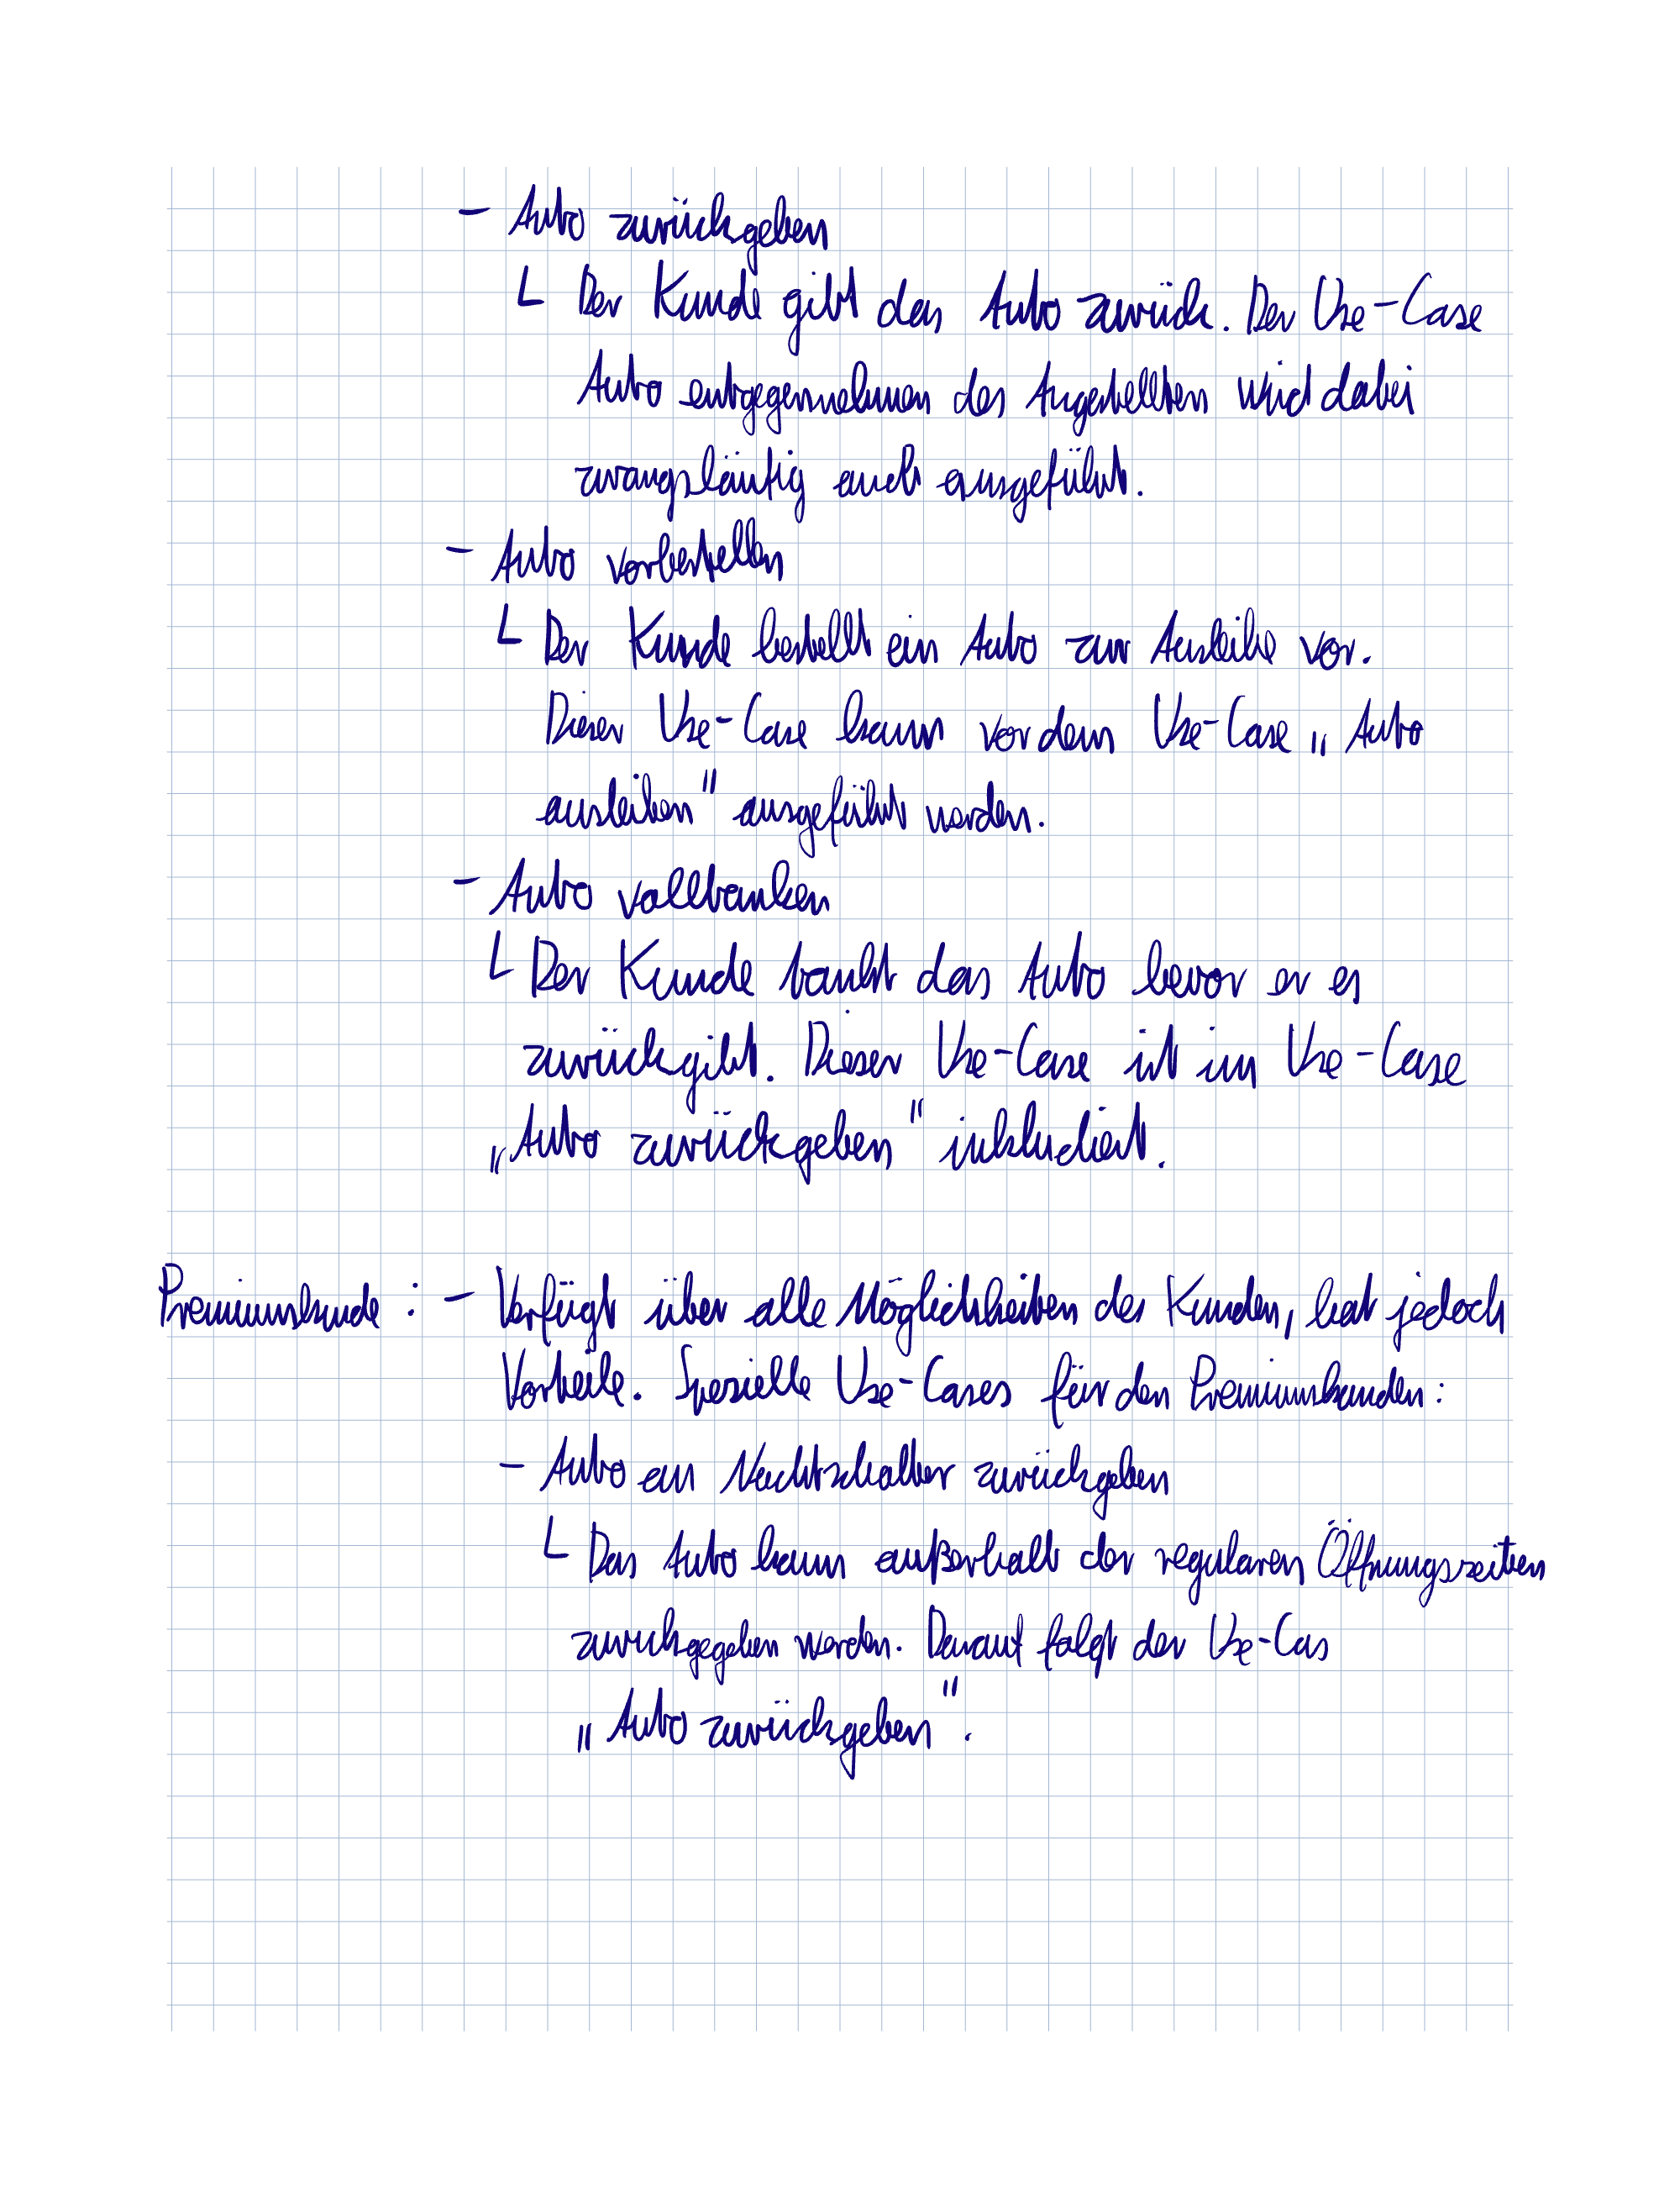 - Auto zurückgeben
└ Der Kunde gibt das Auto zurück. Der Use-Case
Auto entgegennehmen des Angestellten wird dabei
zwangsläufig auch ausgeführt.
- Auto vorbestellen
└ Der Kunde bestellt ein Auto zur Ausleihe vor.
Dieser Use-Case kann vor dem Use-Case „Auto
ausleihen" ausgeführt werden.
- Auto volltanken
└ Der Kunde tankt das Auto bevor er es
zurückgibt. Dieser Use-Case ist im Use-Case
„Auto zurückgeben" inkludiert.
Premiumkunde: - Verfügt über alle Möglichkeiten des Kunden, hat jedoch
Vorteile. Spezielle Use-Cases für den Premiumkunden:
- Auto an Nachtschalter zurückgeben
└ Das Auto kann außerhalb der regularen Öffnungszeiten
zuruckgegeben werden. Darauf folgt der Use-Cas
„Auto zurückgeben".